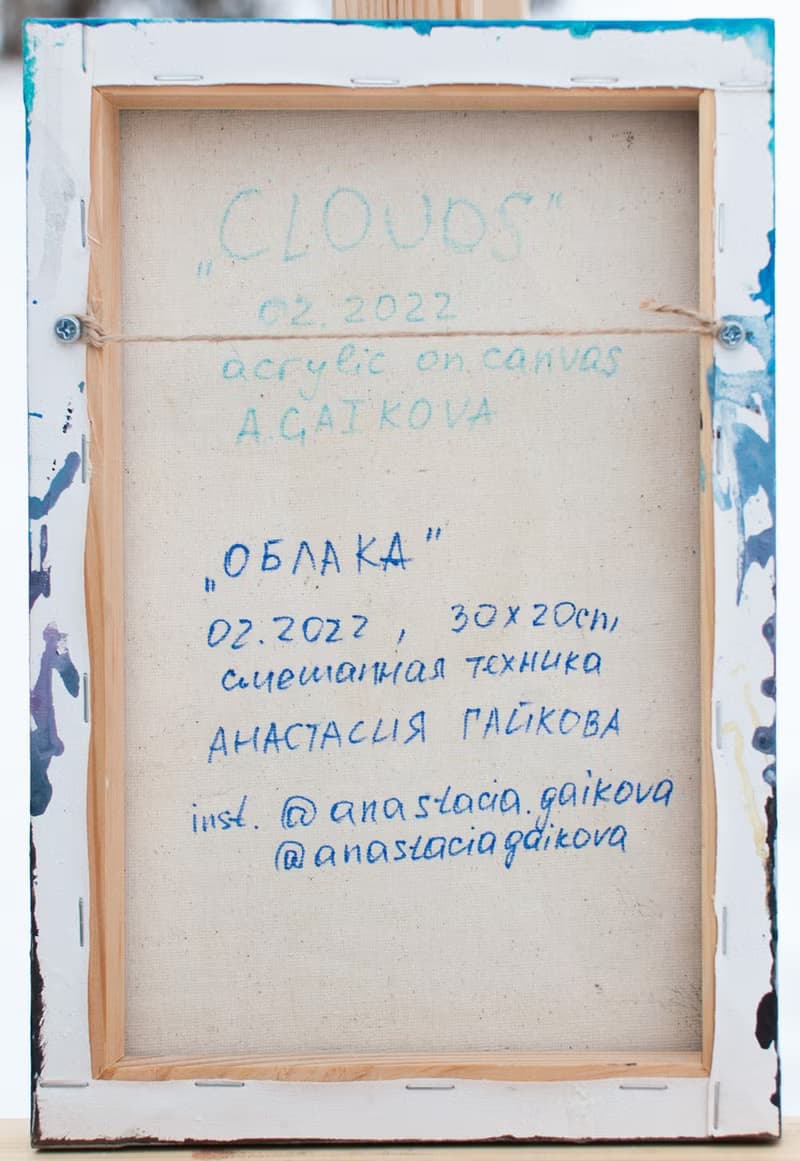 „CLOUDS"
02.2022
acrylic on canvas
A.GAIKOVA
„ОБЛАКА"
02.2022, 30x20cm,
смешанная техника
АНАСТАСИЯ ГАЙКОВА
inst. @anastacia.gaikova
@anastaciagaikova